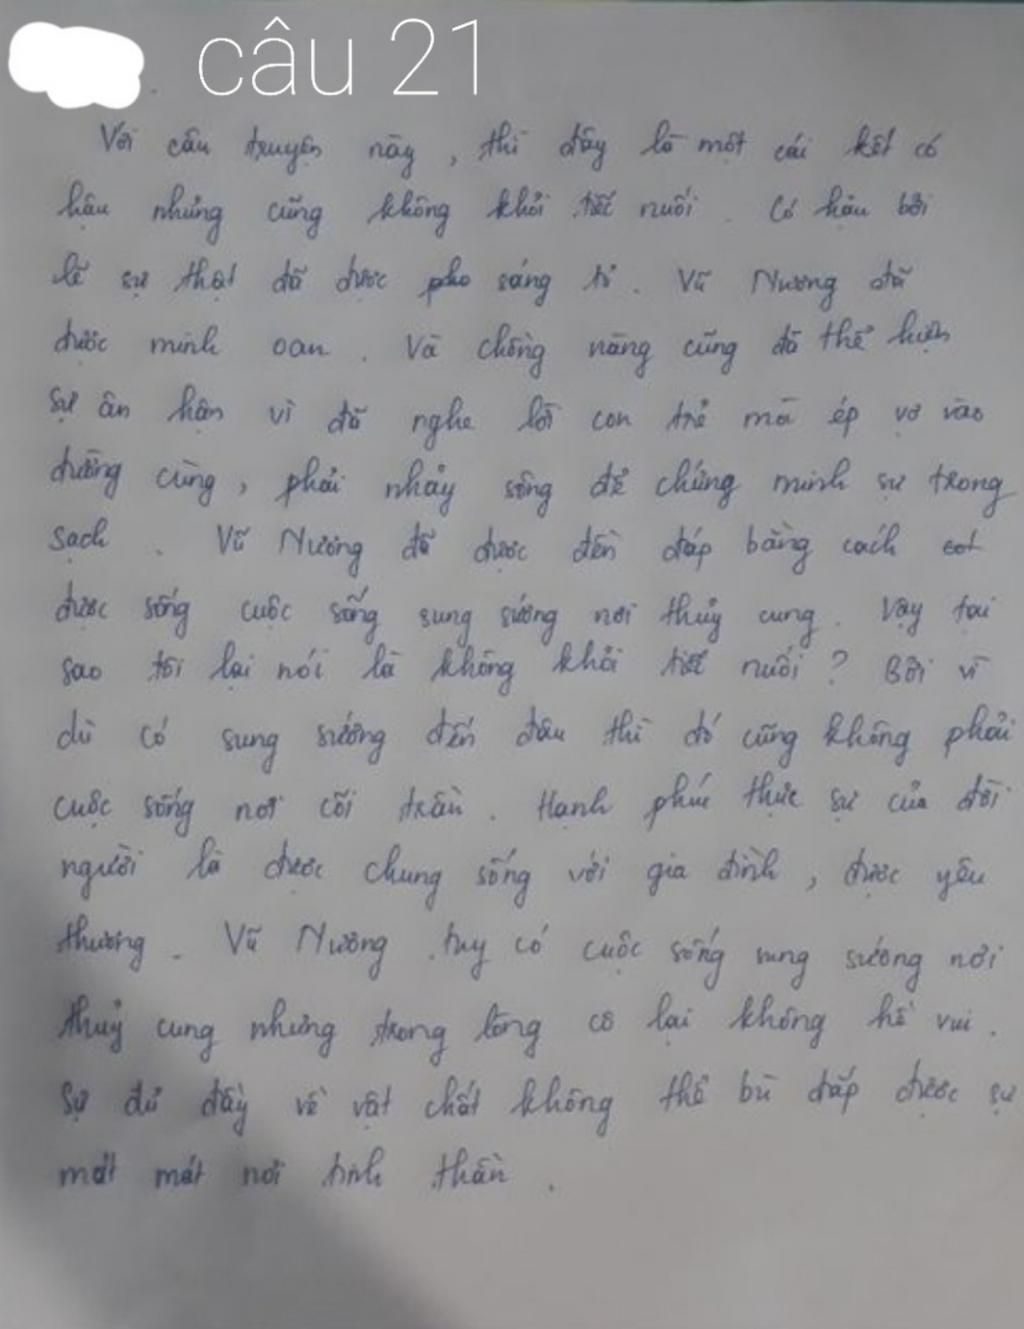 câu 21
Với câu truyện này, thì đây là một cái kết có
hậu nhưng cũng không khỏi tiếc nuối. Có hậu bởi
lẽ sự thật đã được pho sáng tỏ. Vũ Nương đã
được minh oan. Và chồng nàng cũng đã thể hiện
sự ân hận vì đã nghe lời con trẻ mà ép vợ vào
đường cùng, phải nhảy sông để chứng minh sự trong
sạch. Vũ Nương đã được đền đáp bằng cách
được sống cuộc sống sung sướng nơi thủy cung. Vậy tại
sao tôi lại nói là không khỏi tiếc nuối? Bởi vì
dù có sung sướng đến đâu thì đó cũng không phải
cuộc sống nơi cõi trần. Hạnh phúc thực sự của đời
người là được chung sống với gia đình, được yêu
thương. Vũ Nương tuy có cuộc sống sung sướng nơi
thuỷ cung nhưng trong lòng cô lại không hề vui.
Sự đủ đầy về vật chất không thể bù đắp được sự
mất mát nơi tinh thần.